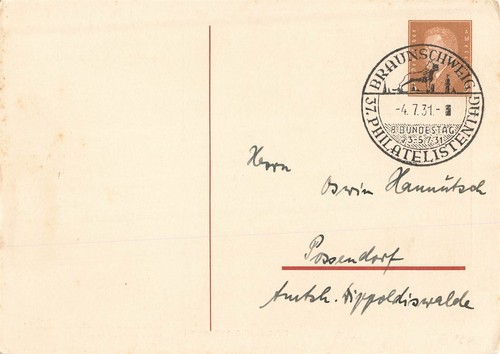 BRAUNSCHWEIG
-4.7.31.-
8. BUNDESTAG
3-5.7.31
37. PHILATELISTENTAG
Herrn
Oswin Hannŭtsch
Possendorf
Amtsh. Dippoldiswalde